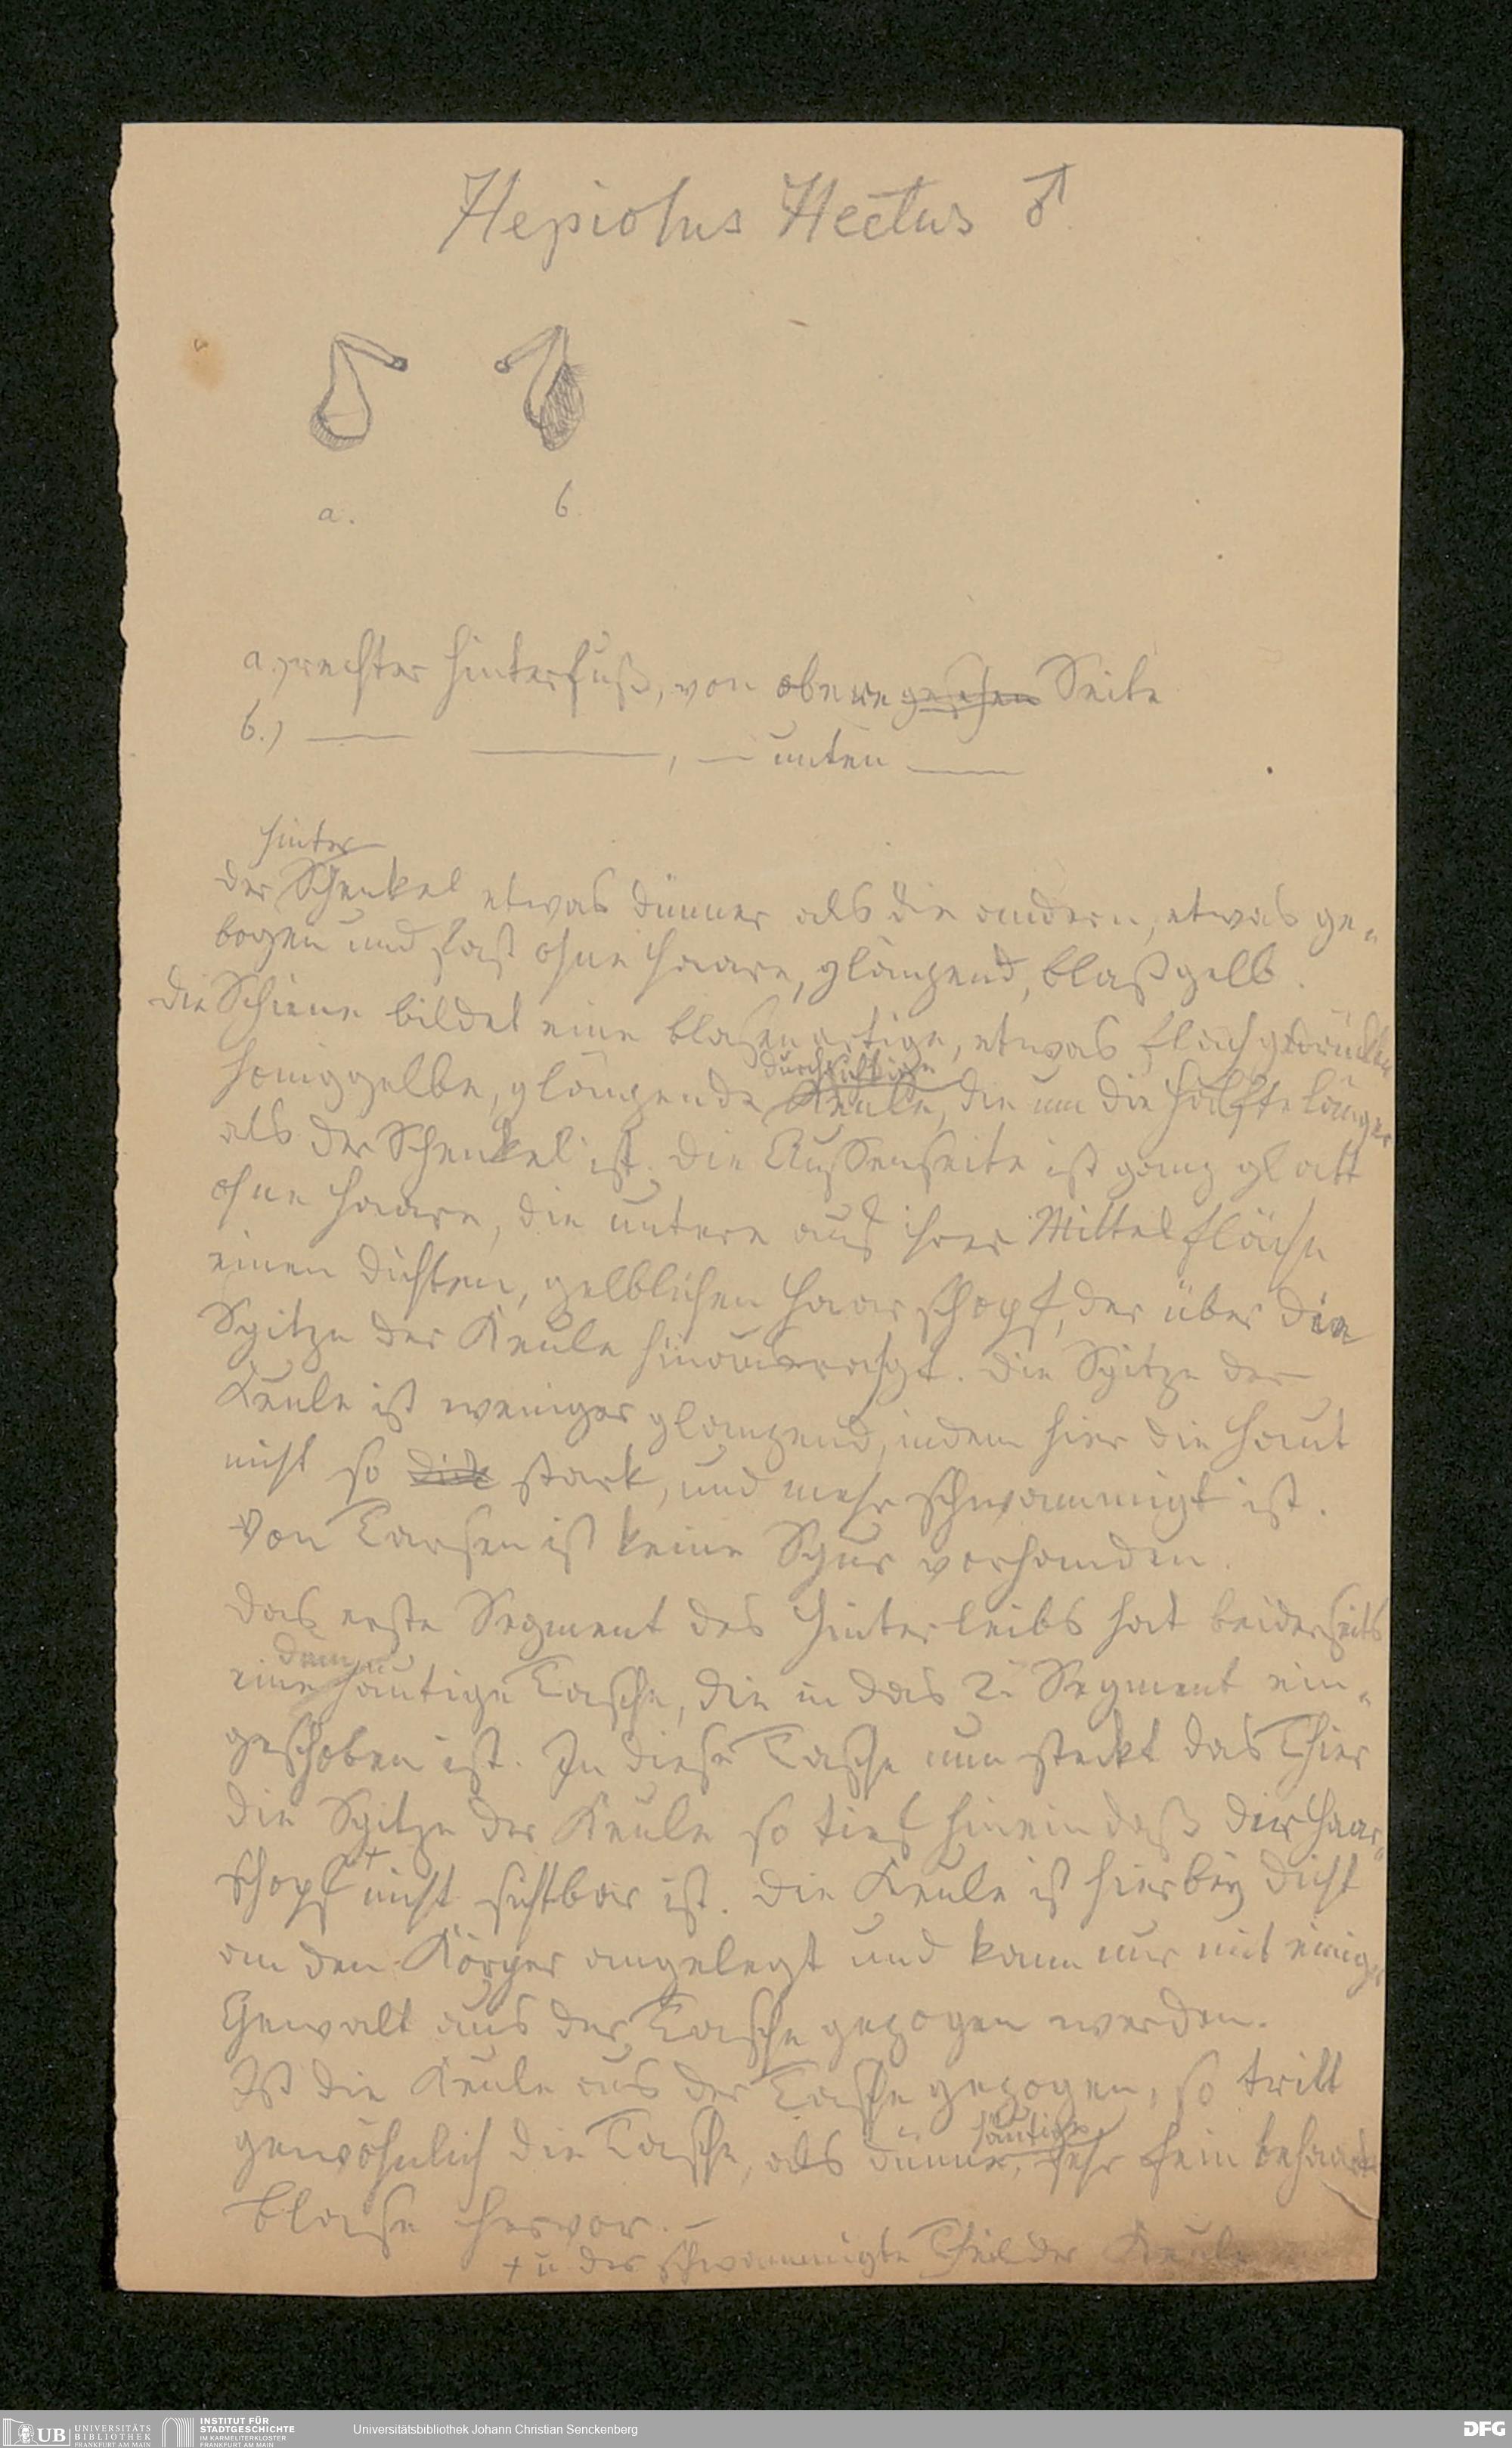 Hepiolus Hectus ♂
a. b
a.) rechter Hinterfuß, von obere gesehen Seite
b.) — —, — unten —
Hinter
der Schenkel etwas dünner als die andern, etwas ge-
bogen und fast ohne Haare, glänzend, blaßgelb.
die Schiene bildet eine blasenartige, etwas flachgedrückte
durchsichtige
honiggelbe, glänzende Keule, die um die Hälfte länger
als der Schenkel ist. Die Aussenseite ist ganz glatt
ohne Haare, die untere aus ihrer Mittelfläche
einen dichten, gelblichen Haarschopf, der über die
Spitze der Keule hinausragt. Die Spitze der
Keule ist weniger glänzend, indem hier die Haut
nicht so dick stark, und mehr schwammigt ist.
Von Tarsen ist keine Spur vorhanden.
Das erste Segment des Hinterleibs hat beiderseits
dünn
eine häutige Tasche, die in das 2. Segment ein-
geschoben ist. In diese Tasche nun steckt das Thier
die Spitze der Keule so tief hinein daß der Haar-
schopf + nicht sichtbar ist. Die Keule ist hierbey dicht
an den Körper angelegt und kann nur mit einiger
Gewalt aus der Tasche gezogen werden.
Ist die Keule aus der Tasche gezogen, so tritt
häutige
gewöhnlich die Tasche, als dünne, sehr fein behaarte
Blase hervor. –
+ u der schwammigte Theil der Keule
UB UNIVERSITÄTS
BIBLIOTHEK
FRANKFURT AM MAIN
INSTITUT FÜR
STADTGESCHICHTE
IM KARMELITERKLOSTER
FRANKFURT AM MAIN
Universitätsbibliothek Johann Christian Senckenberg
DFG